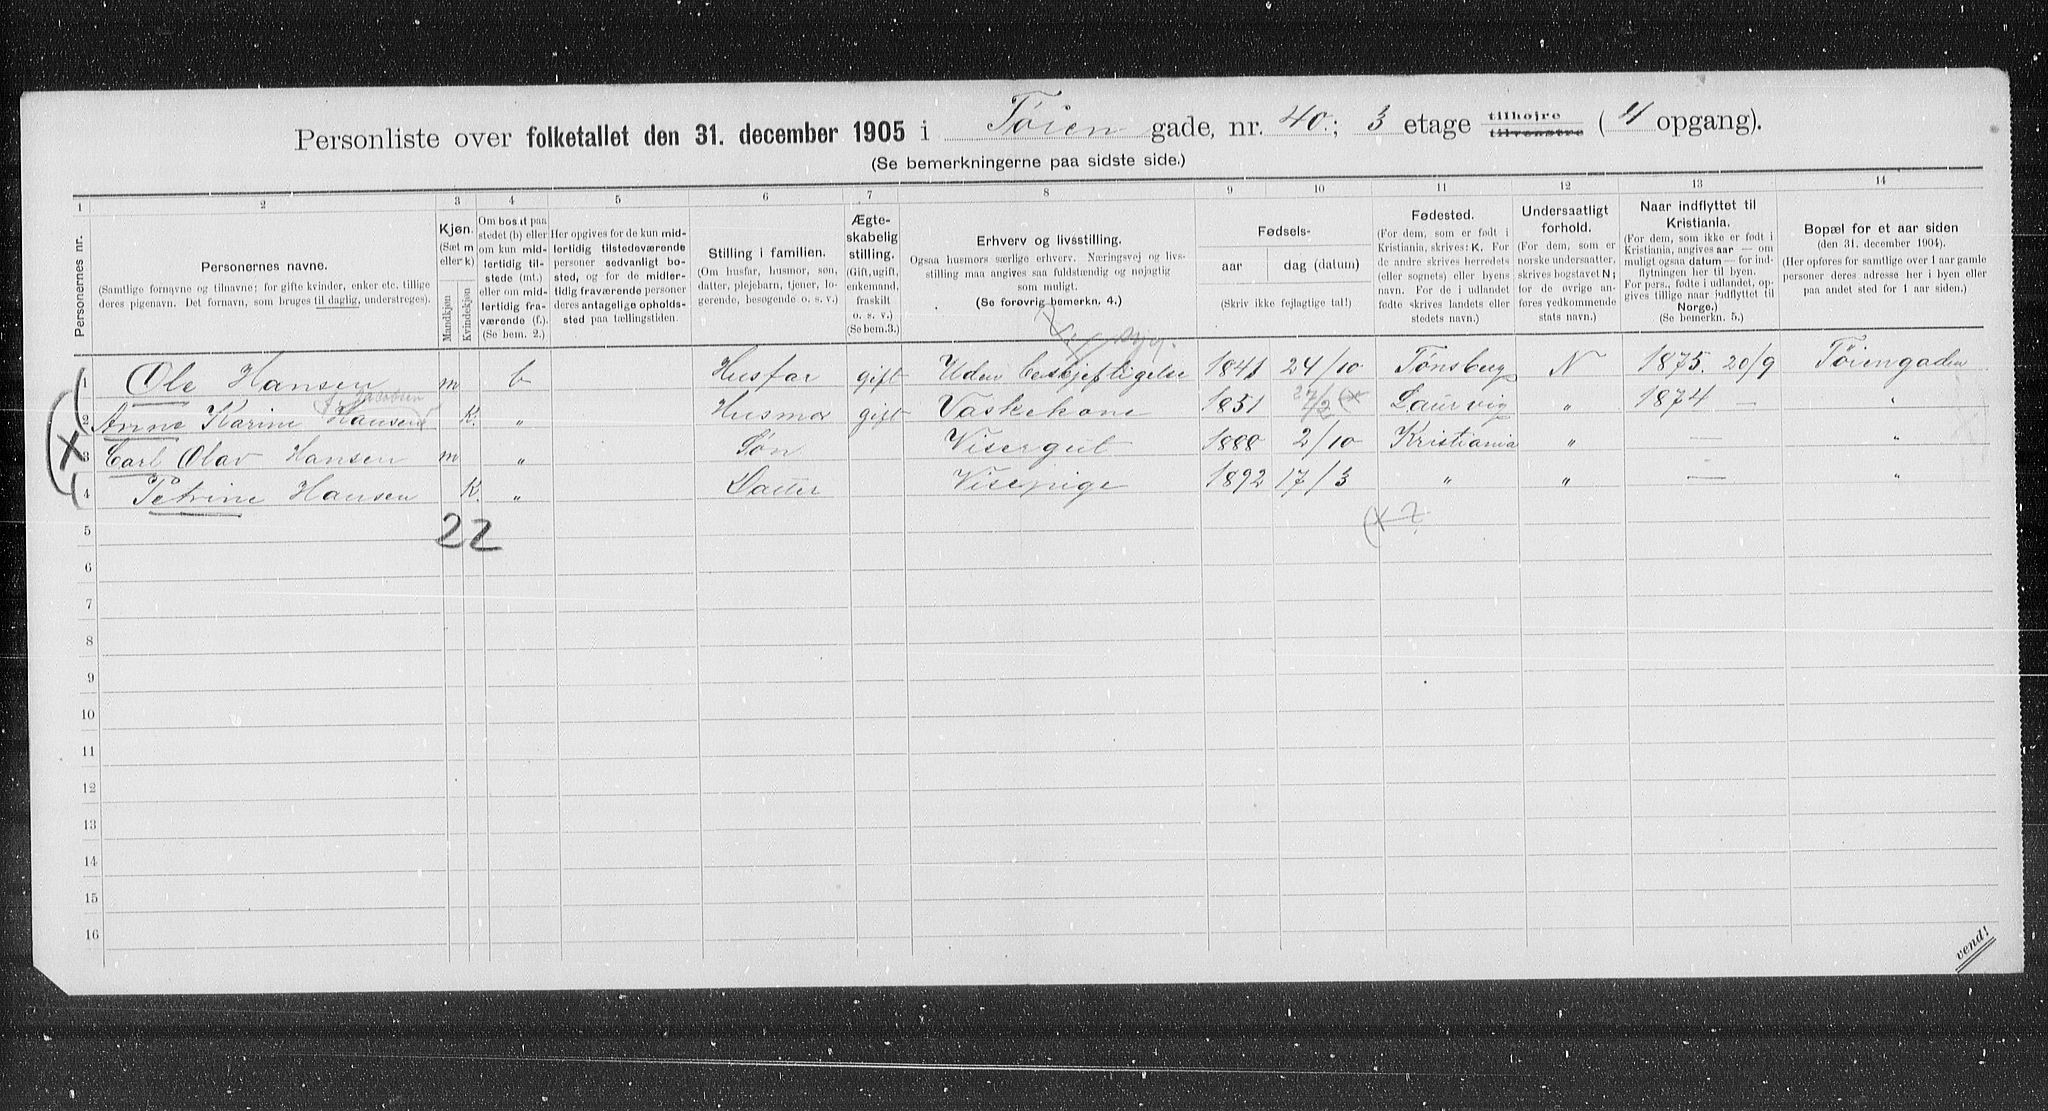 Personliste over folketallet den 31. december 1905 i Tøien gade, nr. 40.; 3 etage tilhøjre tilvenstre (4 opgang).
(Se bemerkningerne paa sidste side.)
1 2 3 4 5 6 7 8 9 10 11 12 13 14
Personernes nr.
Personernes navne.
(Samtlige fornavne og tilnavne; for gifte kvinder, enker etc. tillige
deres pigenavn. Det fornavn, som bruges til daglig, understreges).
Kjøn.
(Sæt m
eller k)
Mandkjøn
Kvindekjøn
Om bosat paa
stedet (b) eller
om kun mid-
lertidig til-
stede (mt.)
eller om mid-
lertidig fra-
værende (f.).
(Se bem. 2.)
Her opgives for de kun mid-
lertidig tilstedeværende
personer sedvanligt bo-
sted, og for de midler-
tidig fraværende personer
deres antagelige opholds-
sted paa tællingstiden.
Stilling i familien.
(Om husfar, husmor, søn,
datter, plejebarn, tjener, lo-
gerende, besøgende o. s. v.)
Ægte-
skabelig
stilling.
(Gift, ugift,
enkemand,
fraskilt
o. s. v.)
(Se bem.3.)
Erhverv og livsstilling.
Ogsaa husmors særlige erhverv. Næringsvej og livs-
stilling maa angives saa fuldstændig og nøjagtig
som muligt.
(Se forøvrig bemerkn. 4.)
Fødsels-
aar dag (datum)
(Skriv ikke fejlagtige tal!)
Fødested.
(For dem, som er født i
Kristiania, skrives: K. For
de andre skrives herredets
(eller sognets) eller byens
navn. For de i udlandet
fødte skrives landets eller
stedets navn.)
Undersaatligt
forhold.
(For dem, som er
norske undersaatter,
skrives bogstavet N;
for de øvrige an-
føres vedkommende
stats navn.)
Naar indflyttet til
Kristiania.
(For dem, som ikke er født i
Kristiania, angives aar — om
muligt ogsaa datum — for ind-
flytningen her til byen.
For pers., fødte i udlandet, op-
gives tillige naar indflyttet til
Norge.)
(Se bemerkn. 5.)
Bopæl for et aar siden
(den 31. december 1904).
(Her opføres for samtlige over 1 aar gamle
personer deres adresse her i byen eller
paa andet sted for 1 aar siden.)
1 Ole Hansen m b Husfar gift Uden beskjeftigelse syg. 1841 24/10 Tønsberg N 1875. 20/9 Tøiengaden
f. Jacobsen
2 Anne Karine Hansen K. „ Husmor gift Vaskekone 1851 27/2 (x Laurvig „ 1874 — „
X
3 Carl Olav Hansen m „ Søn Visergut 1888 2/10 Kristiania „ — „
4 Petrine Hansen K. „ Datter Visepige 1892 17/3 „ „ — „
5 22 (x ?
6
7
8
9
10
11
12
13
14
15
16
vend!